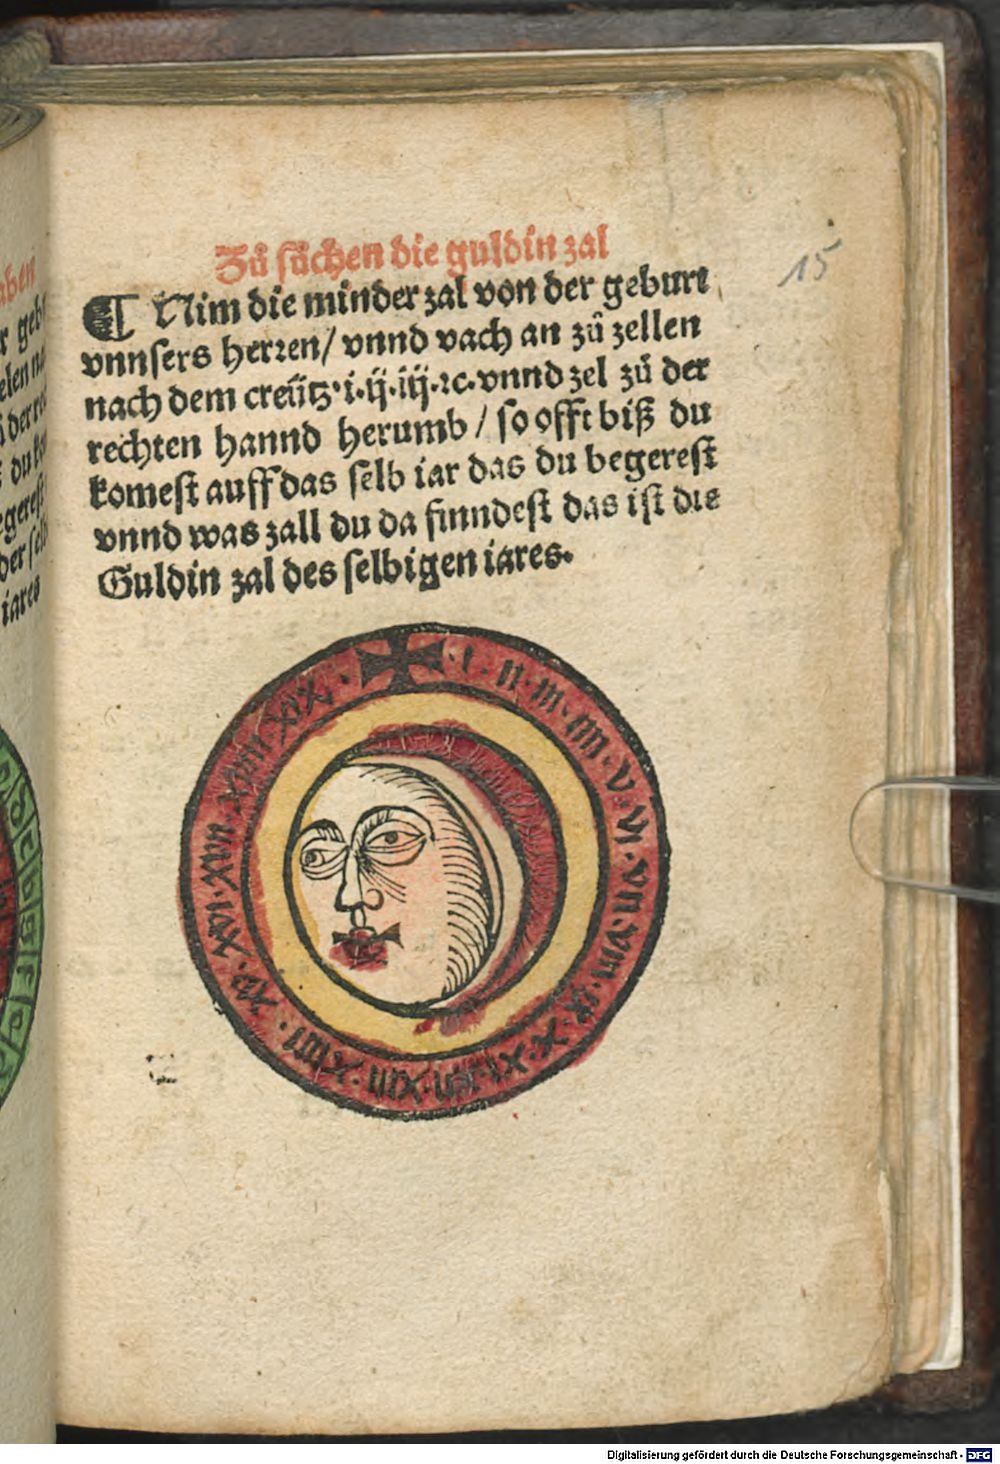 Zů sůchen die guldin zal
15
¶ Nim die minder zal von der geburt
vnnsers herꝛen/ vnnd vach an zů zellen
nach dem creütz·i·ij·iij·ꝛc·vnnd zel zů der
rechten hannd herumb / so offt biß du
komest auff das selb iar das du begerest
vnnd was zall du da finndest das ist die
Guldin zal des selbigen iares.
· i · ii · iii · iiii · v · vi · vii · viii · ix · x · xi · xii · xiii · xiiii · xv · xvi · xvii · xviii · xix ·
geb
iares
Digitalisierung gefördert durch die Deutsche Forschungsgemeinschaft - DFG